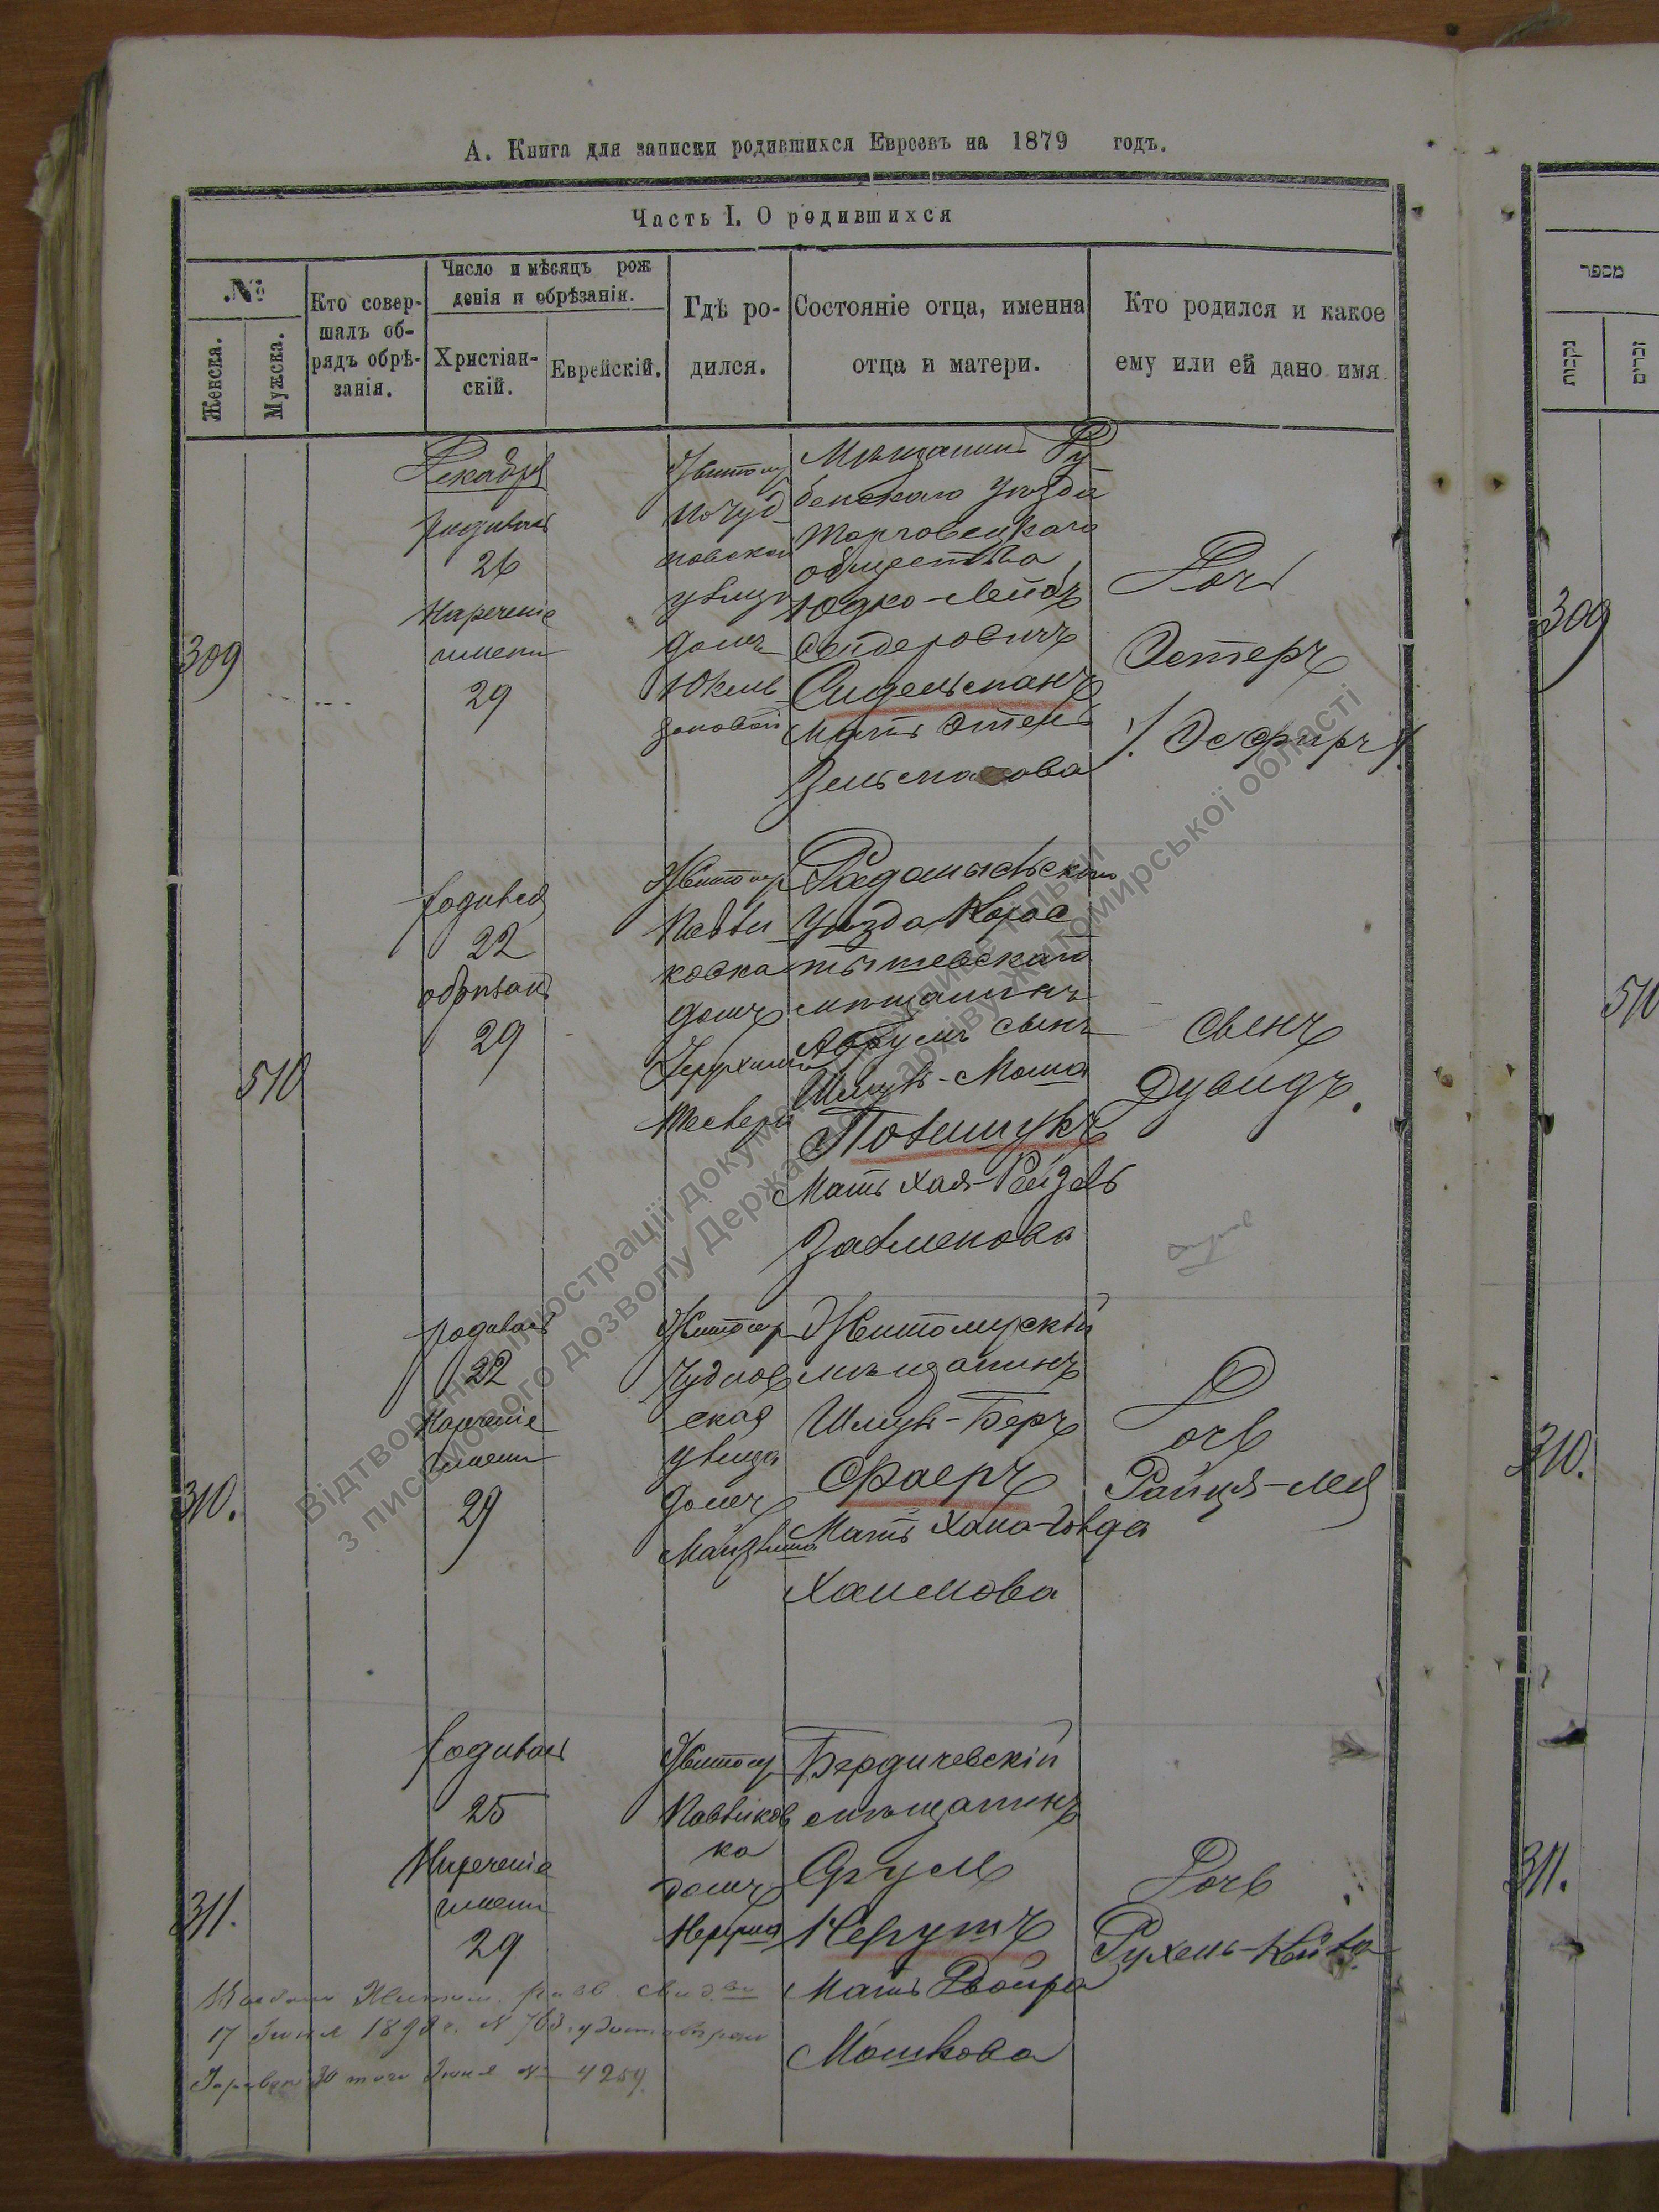 А. Книга для записки родившихся Евреевъ на 1879 годъ.
Часть I. О родившихся
№
Женска.
Мужска.
Кто совер-
шалъ об-
рядъ обрѣ-
занія.
Число и мѣсяцъ рож
денія и обрѣзанія.
Христіан-
скій.
Еврейскій.
Гдѣ ро-
дился.
Состояніе отца, именна
отца и матери.
Кто родился и какое
ему или ей дано имя.
309
Декабря
родилась
26
Нареченіе
имени
29
Житомир
по Чуд
новской
улицѣ
домъ
Мѣщанинъ Ду
бенскаго уѣзда
Торговецкаго
общества
Юдко-Лейбъ
Сендеровичъ
Сидельманъ
Мать Этель
Зельманова
Дочь
Эстеръ
/: Эсфирь :/
510
родился
22
обрѣзанъ
29
Житомир
Павли
ковка
домъ
Радомысльскаго
уѣзда Корос
тышевскаго
мѣщанинъ
Аврумъ сынъ
Шмуль-Мошка
Полищукъ
Мать Хая-Рейзль
Залменова
Сынъ
Дувидъ.
310.
родилась
22
Нареченіе
имени
29
Житомир
Чуднов
ская
улица
домъ
Житомирскій
мѣщанинъ
Шмуль-Беръ
Фаеръ
Мать Хана-Голда
Хаимова
Дочь
Райця-Лея
311.
родилась
25
Нареченіе
имени
29
Житомир
Павликов
ка
домъ
Бердичевскій
мѣщанинъ
Срулъ
Черутъ
Мать Двойра
Мошкова
Дочь
Рухель-Кейла
17 Іюня
4259.
מספר
נקבות
זכרים
309
510
310.
311.
Відтворення ілюстрації документа можливе тільки
з письмового дозволу Державного архіву Житомирської області